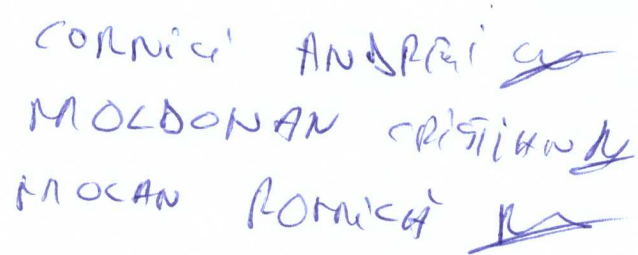 CORNICI ANDREI
MOLDOVAN CRISTIAN
MOCAN ROMICĂ